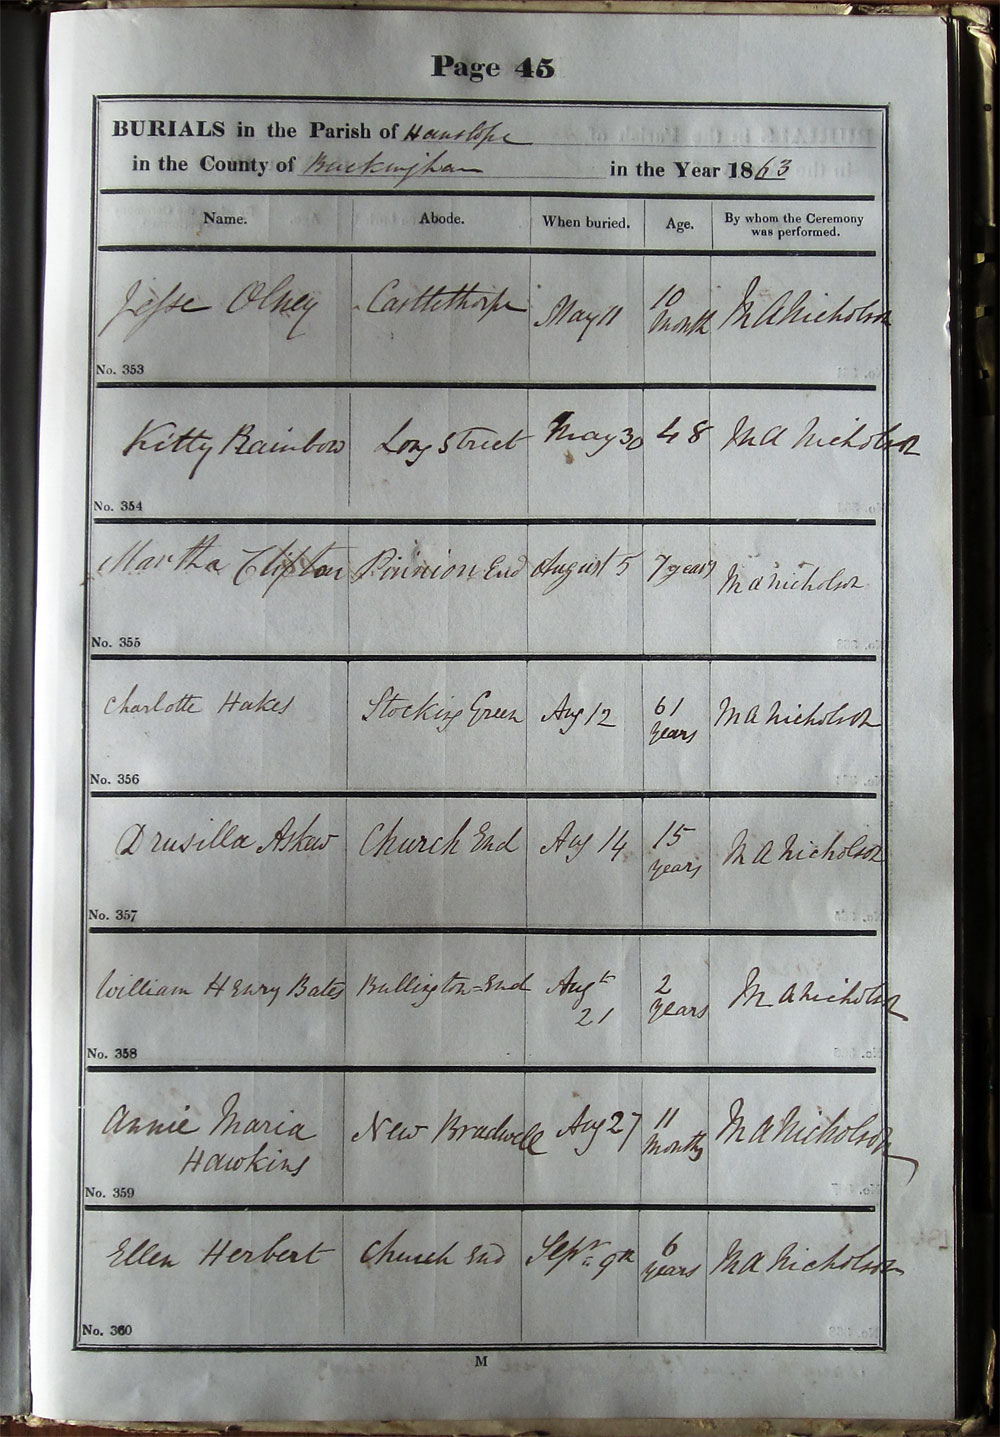 Page 45
BURIALS in the Parish of Hanslope
in the County of Buckingham in the Year 1863
Name. Abode. When buried. Age. By whom the Ceremony was performed.
Jesse Olney Castlethorpe May 11 10 Month M A Nicholson
No. 353
Kitty Rainbow Long Street May 30 48 M A Nicholson
No. 354
Martha Clifton Pinnion End August 5 7 years M A Nicholson
No. 355
Charlotte Hakes Stocking Green Aug 12 61 years M A Nicholson
No. 356
Drusilla Askew Church End Aug 14 15 years M A Nicholson
No. 357
William Henry Bates Bullington=End Augt 21 2 years M A Nicholson
No. 358
Annie Maria Hawkins New Bradwell Aug 27 11 Months M A Nicholson
No. 359
Ellen Herbert Church End Sepr 9th 6 years M A Nicholson
No. 360
M